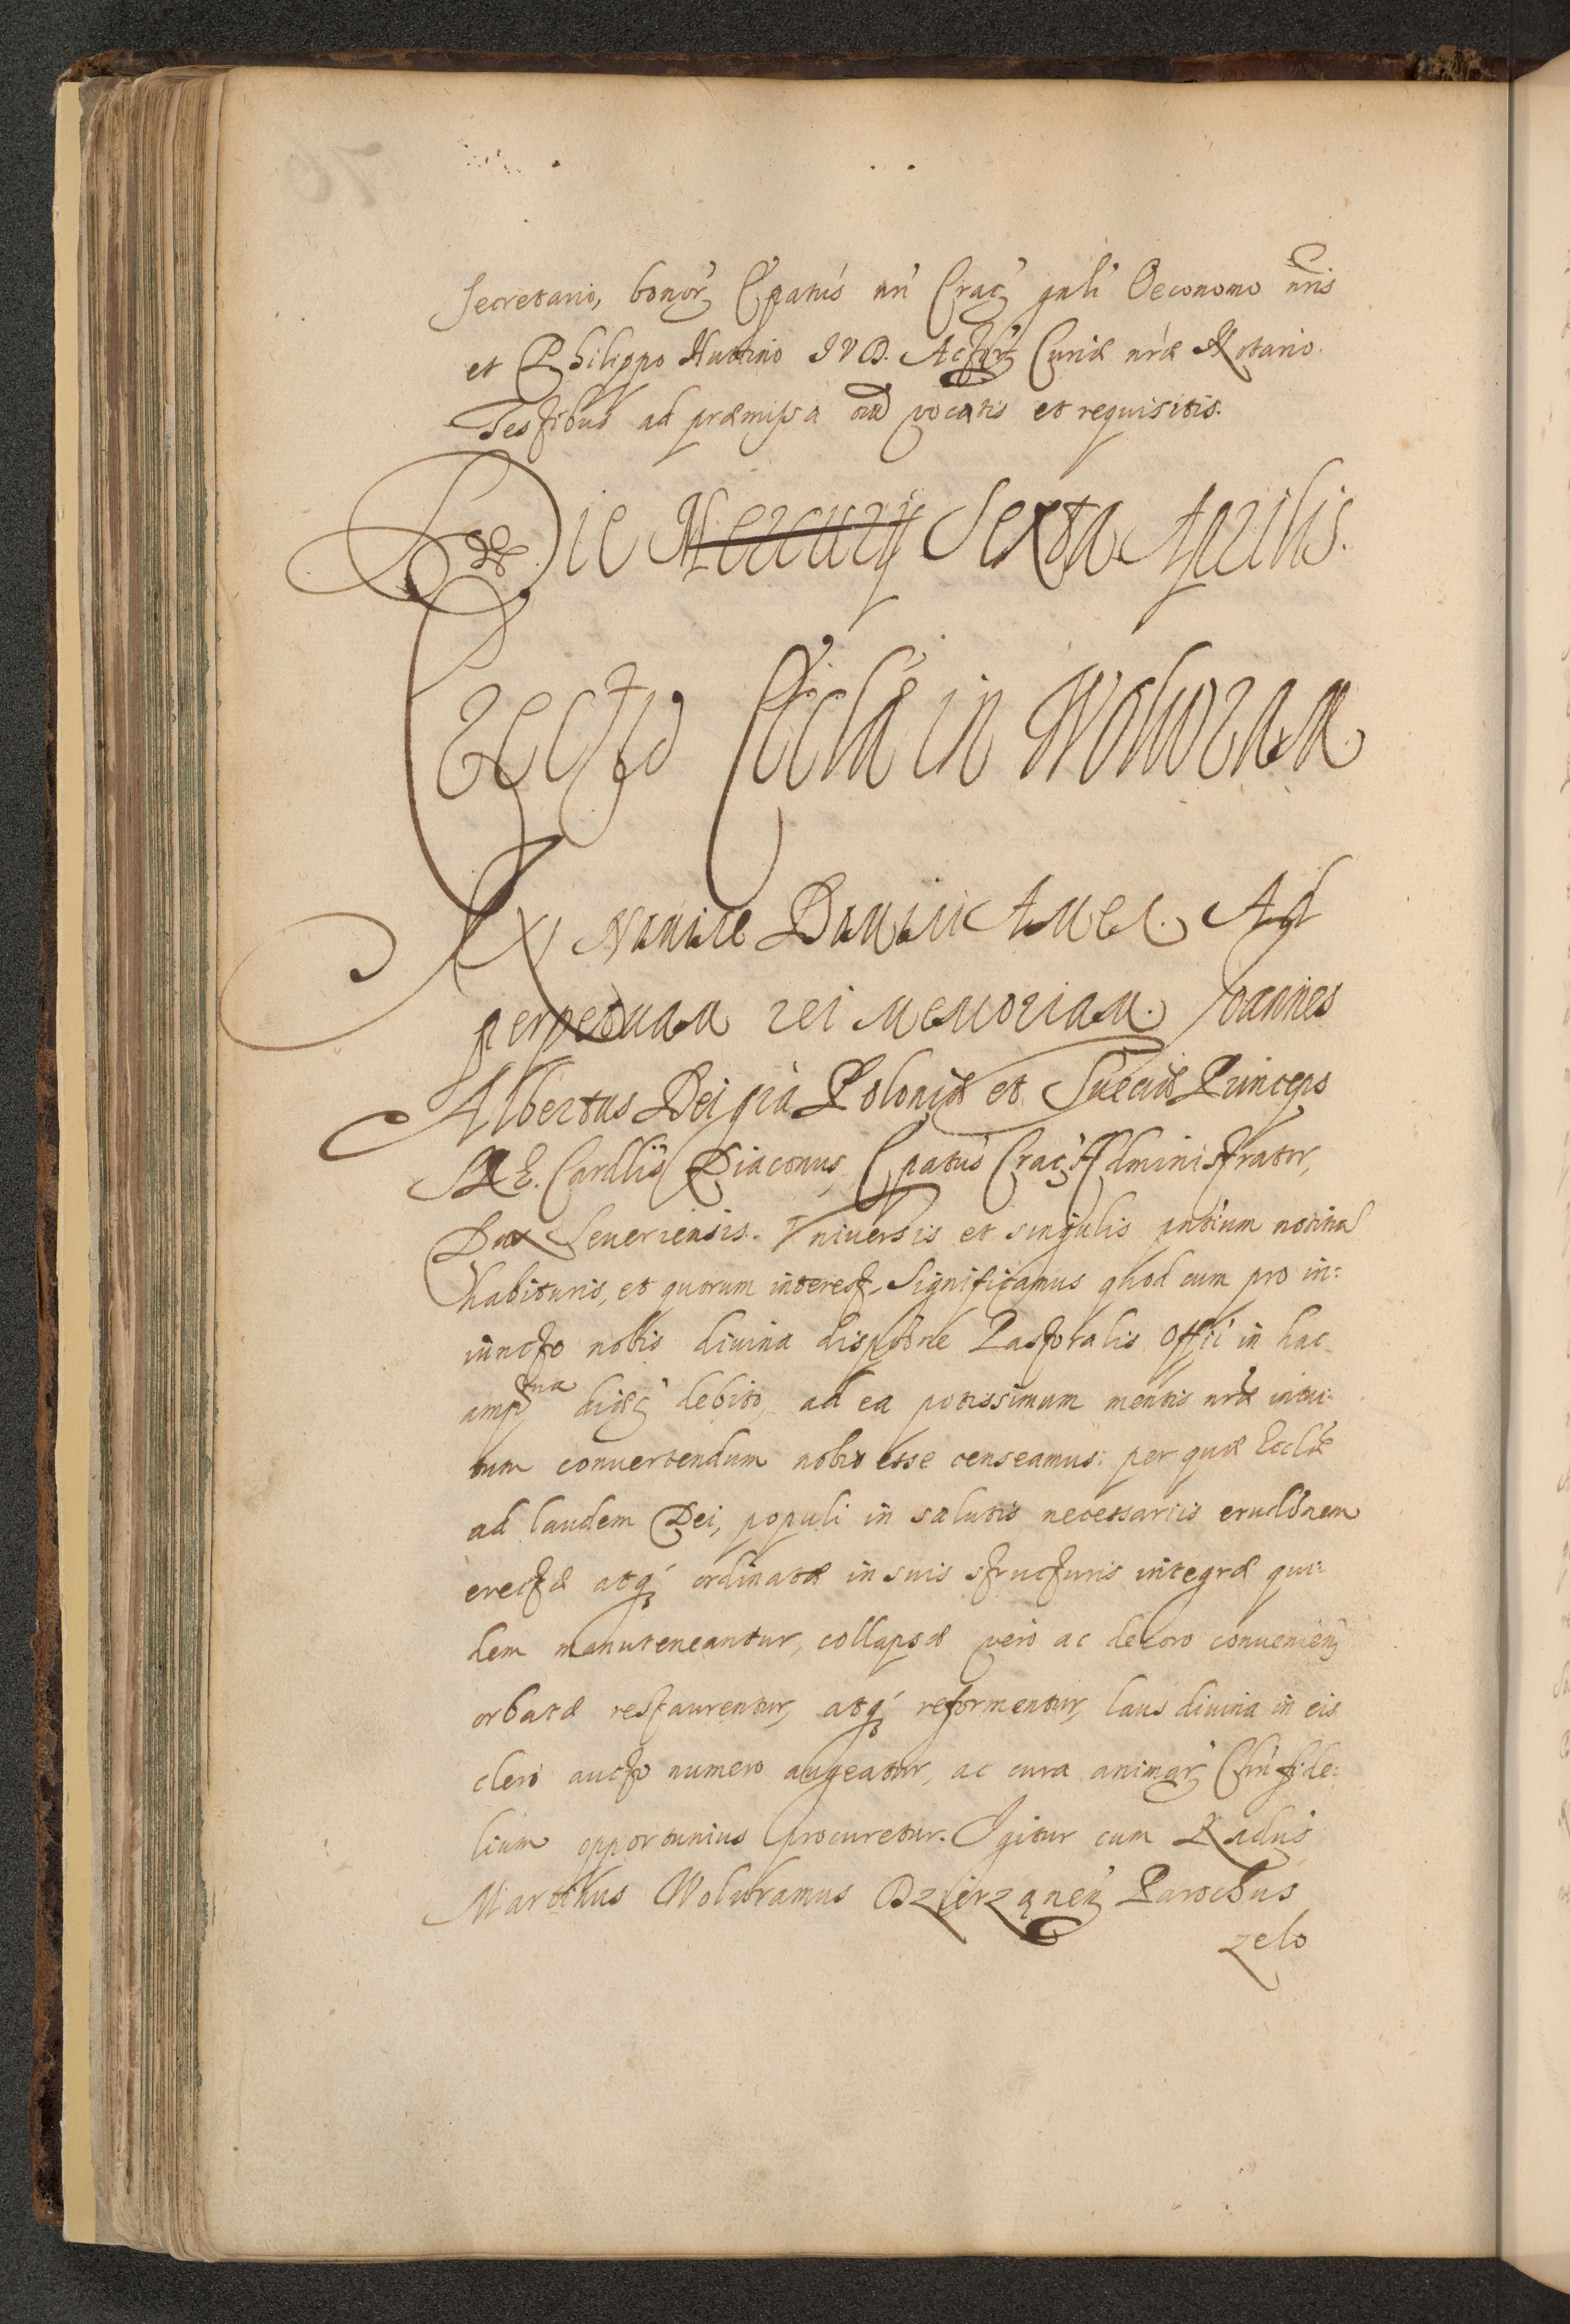 Secretario, bonor Epatus nri Crac gnli Oeconomo nris
et Philippo Huttino I V D. Actor Curiæ nræ Notario.
Testibus ad præmissa vocatis et requisitis.
Die Mercurij Sexta Aprilis.
Erectio Eccliæ in Wolwram
In Nomine Domini Amen. Ad
perpetuam rei memoriam. Joannes
Albertus Dei gra Poloniæ et Sueciæ Princeps
S R E. Cardlis Diaconus, Epatus Crac Administrator,
Dux Severiensis. Vniversis et singulis pntium notitiā
habituris, et quorum interest, Significamus quod cum pro in:
iuncto nobis divina dispōne Pastoralis Offii in hac
ampma diæc debito, ad ea potissimum mentis nræ intui:
tum convertendum nobis esse censeamus: per quæ Eccliæ
ad laudem Dei, populi in salutis necessariis erudōnem
erectæ atq ordinatæ in suis structuris integræ qui:
dem manuteneantur, collapsæ vero ac decoro convenien
orbatæ restaurentur, atq reformentur, laus divina in eis
clero aucto numero augeatur, ac cura animar Chri fide:
lium opportunius procuretur. Igitur cum Rndus
Martinus Wolwramus Dzierząnen Parochus
zelo